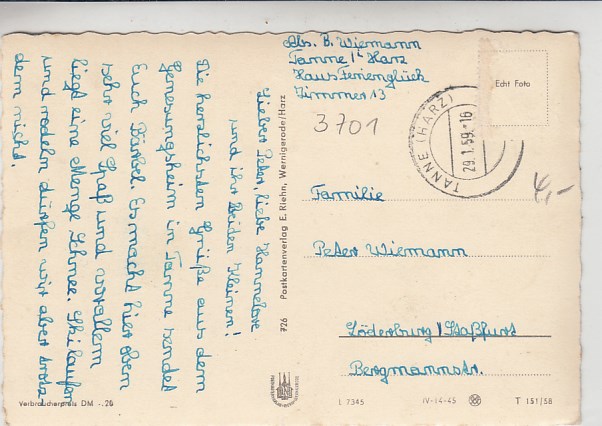 Lieber Peter, liebe Hannelore
und ihr beiden Kleinen!
Die herzlichsten Grüße aus dem
Genesungsheim in Tanne sendet
Euch Bärbel. Es macht hier oben
sehr viel Spaß und vor allem
liegt eine Menge Schnee. Skilaufen
und rodeln dürfen wir aber trotz
dem nicht.
Verbraucherpreis DM -.20
726 Postkartenverlag E. Riehn, Wernigerode/Harz
Abs. B. Wiemann
Tanne / Harz
Haus Ferienglück
Zimmer 13
3701
TANNE (HARZ)
29.1.59.-16
Echt Foto
4,-
Familie
Peter Wiemann
Löderburg / Staßfurt
Bergmannstr.
L 7345
IV-14-45
T 151/58